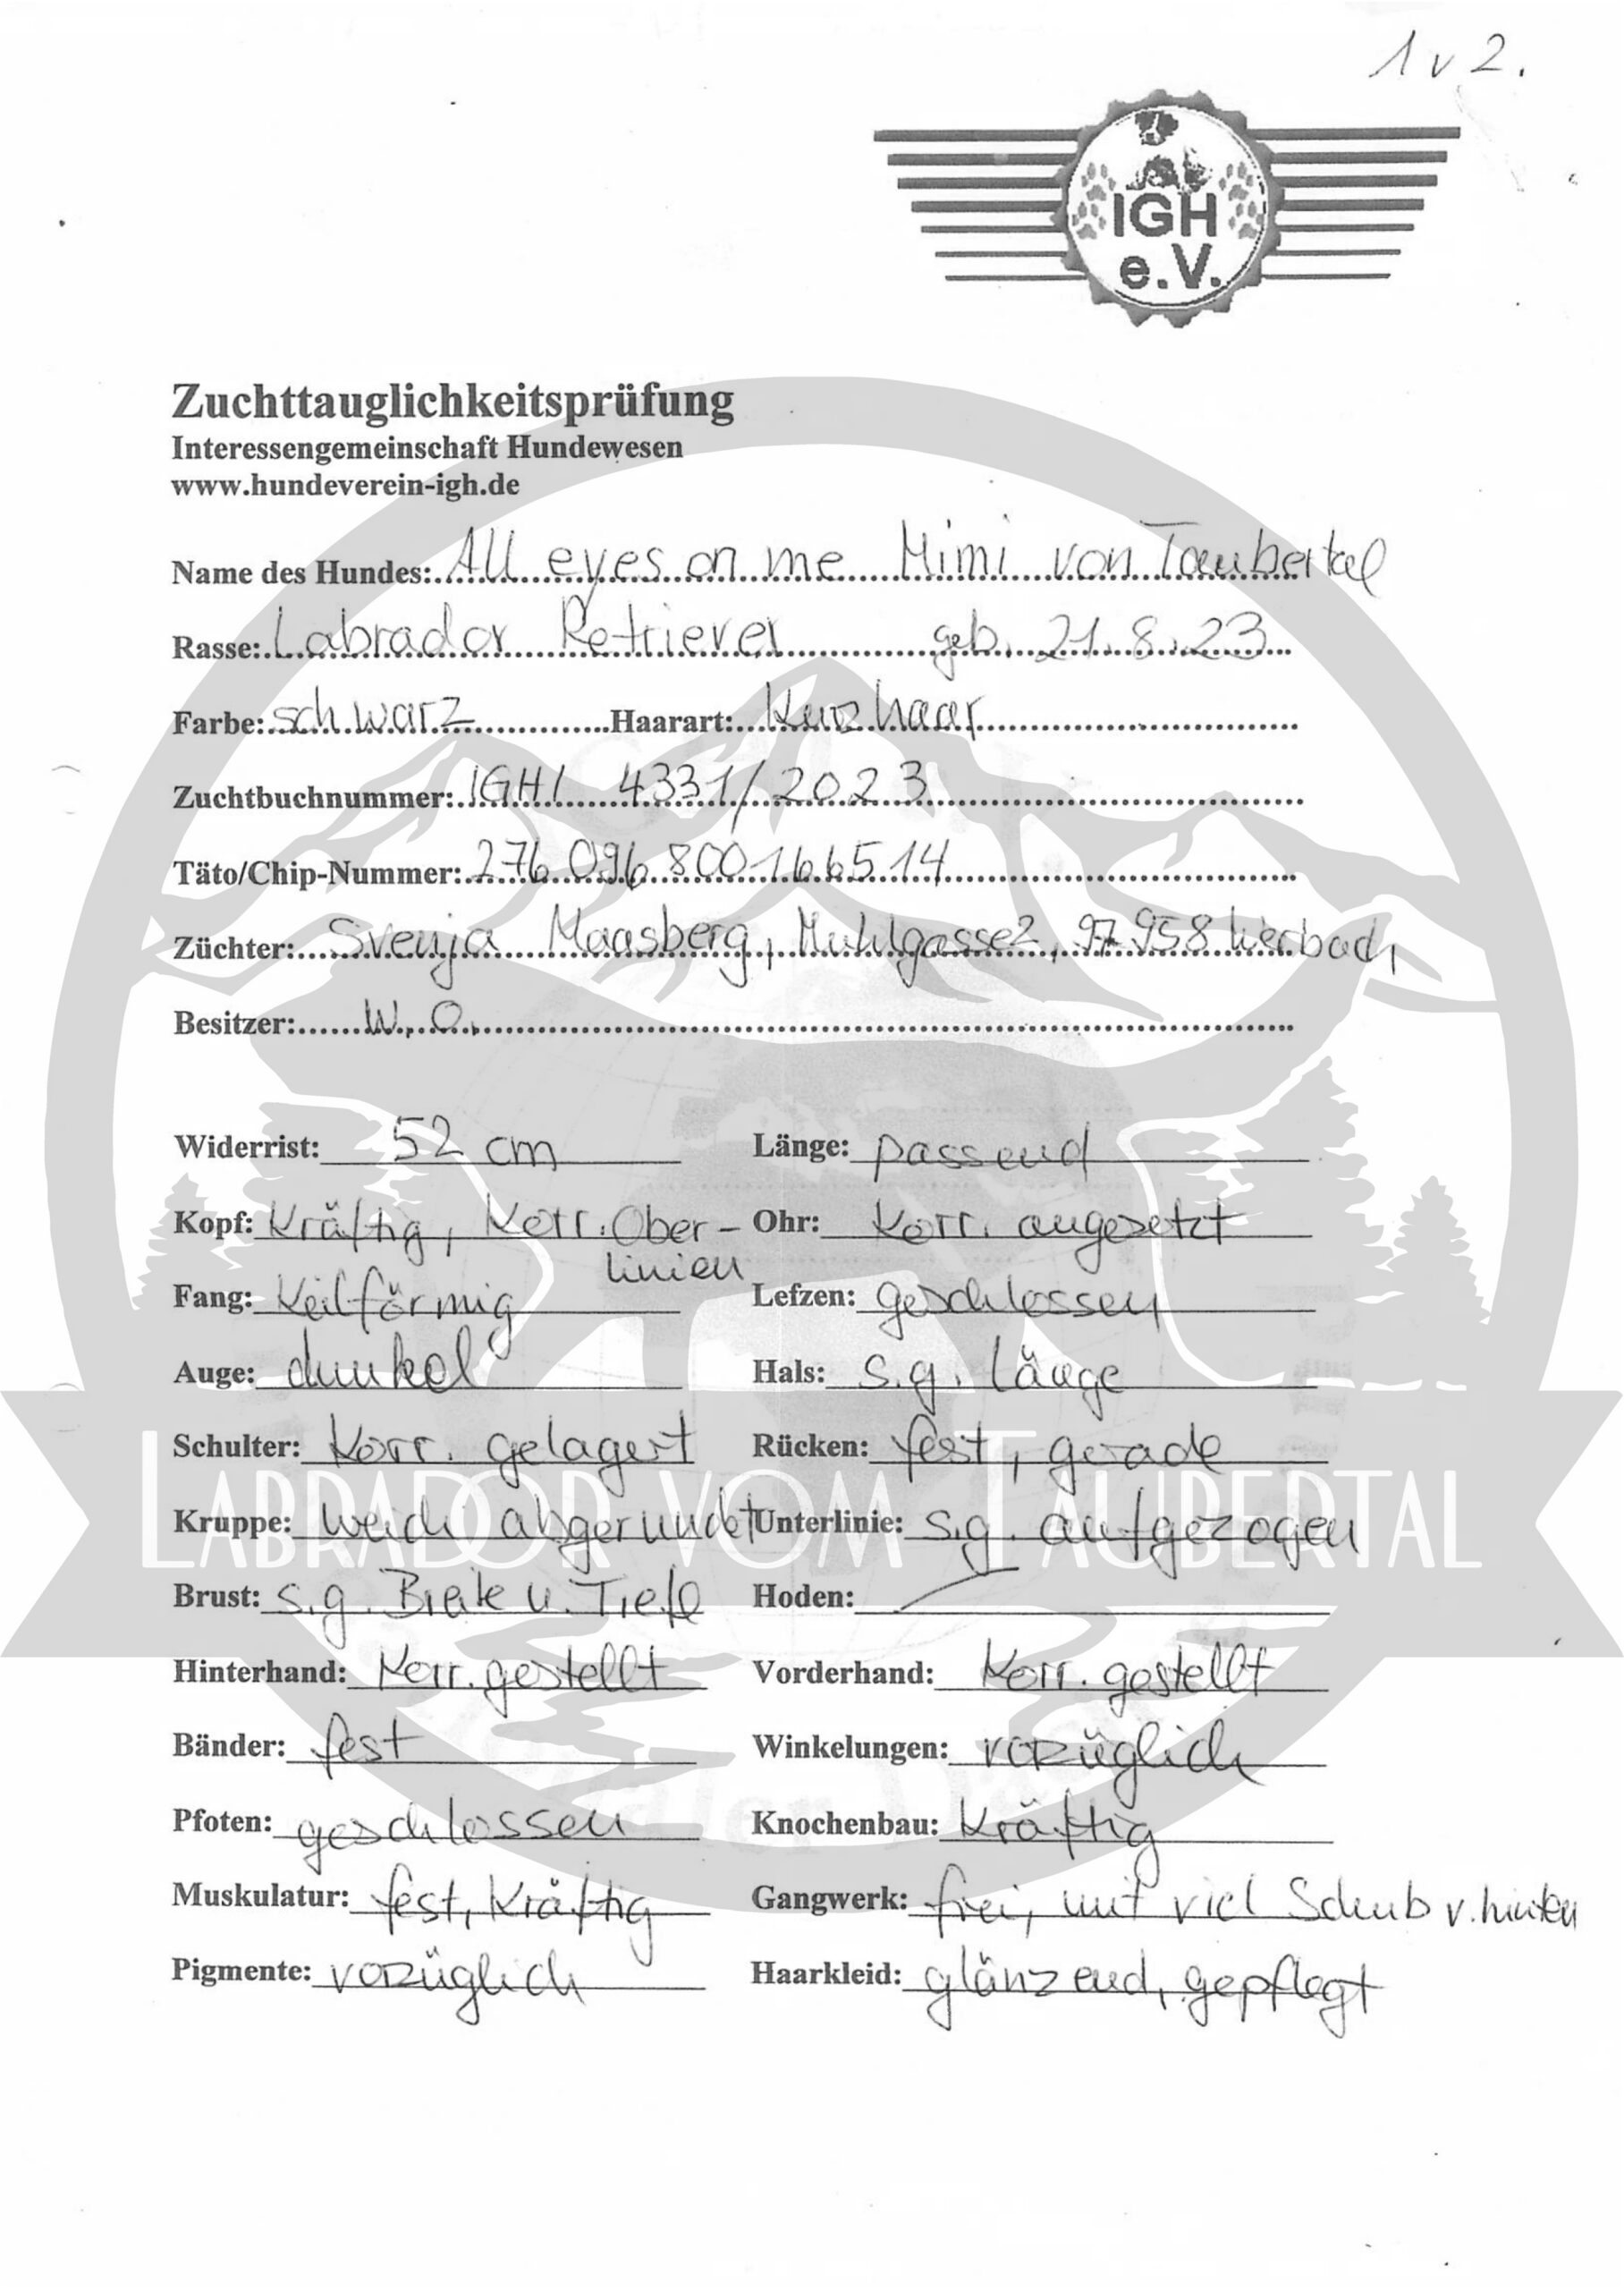 1 v 2.
IGH
e.V.
Zuchttauglichkeitsprüfung
Interessengemeinschaft Hundewesen
www.hundeverein-igh.de
Name des Hundes: All eyes on me Mimi von Taubertal
Rasse: Labrador Retriever geb. 21.8.23
Farbe: schwarz Haarart: Kurzhaar
Zuchtbuchnummer: IGH/ 4331/2023
Täto/Chip-Nummer: 276 096 800 166 514
Züchter: Svenja Maasberg, Muhlgasse 2, 97958 Werbach
Besitzer: W. O.
Widerrist: 52 cm Länge: passend
Kopf: Kräftig, Korr. Ober- Ohr: Korr. angesetzt
linien
Fang: Keilförmig Lefzen: geschlossen
Auge: dunkel Hals: s.g. Länge
Schulter: Korr. gelagert Rücken: fest, gerade
LABRADOR VOM TAUBERTAL
Kruppe: weich abgerundet Unterlinie: s.g. aufgezogen
Brust: s.g. Breite u. Tiefe Hoden: —
Hinterhand: Korr. gestellt Vorderhand: Korr. gestellt
Bänder: fest Winkelungen: vorzüglich
Pfoten: geschlossen Knochenbau: Kräftig
Muskulatur: fest, Kräftig Gangwerk: frei, mit viel Schub v. hinten
Pigmente: vorzüglich Haarkleid: glänzend, gepflegt